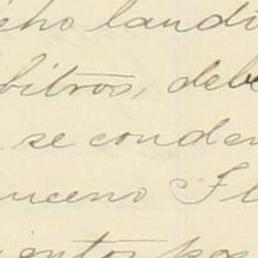 cho laudo
bitros, debe
se conden
nceno Fl
ientos pos